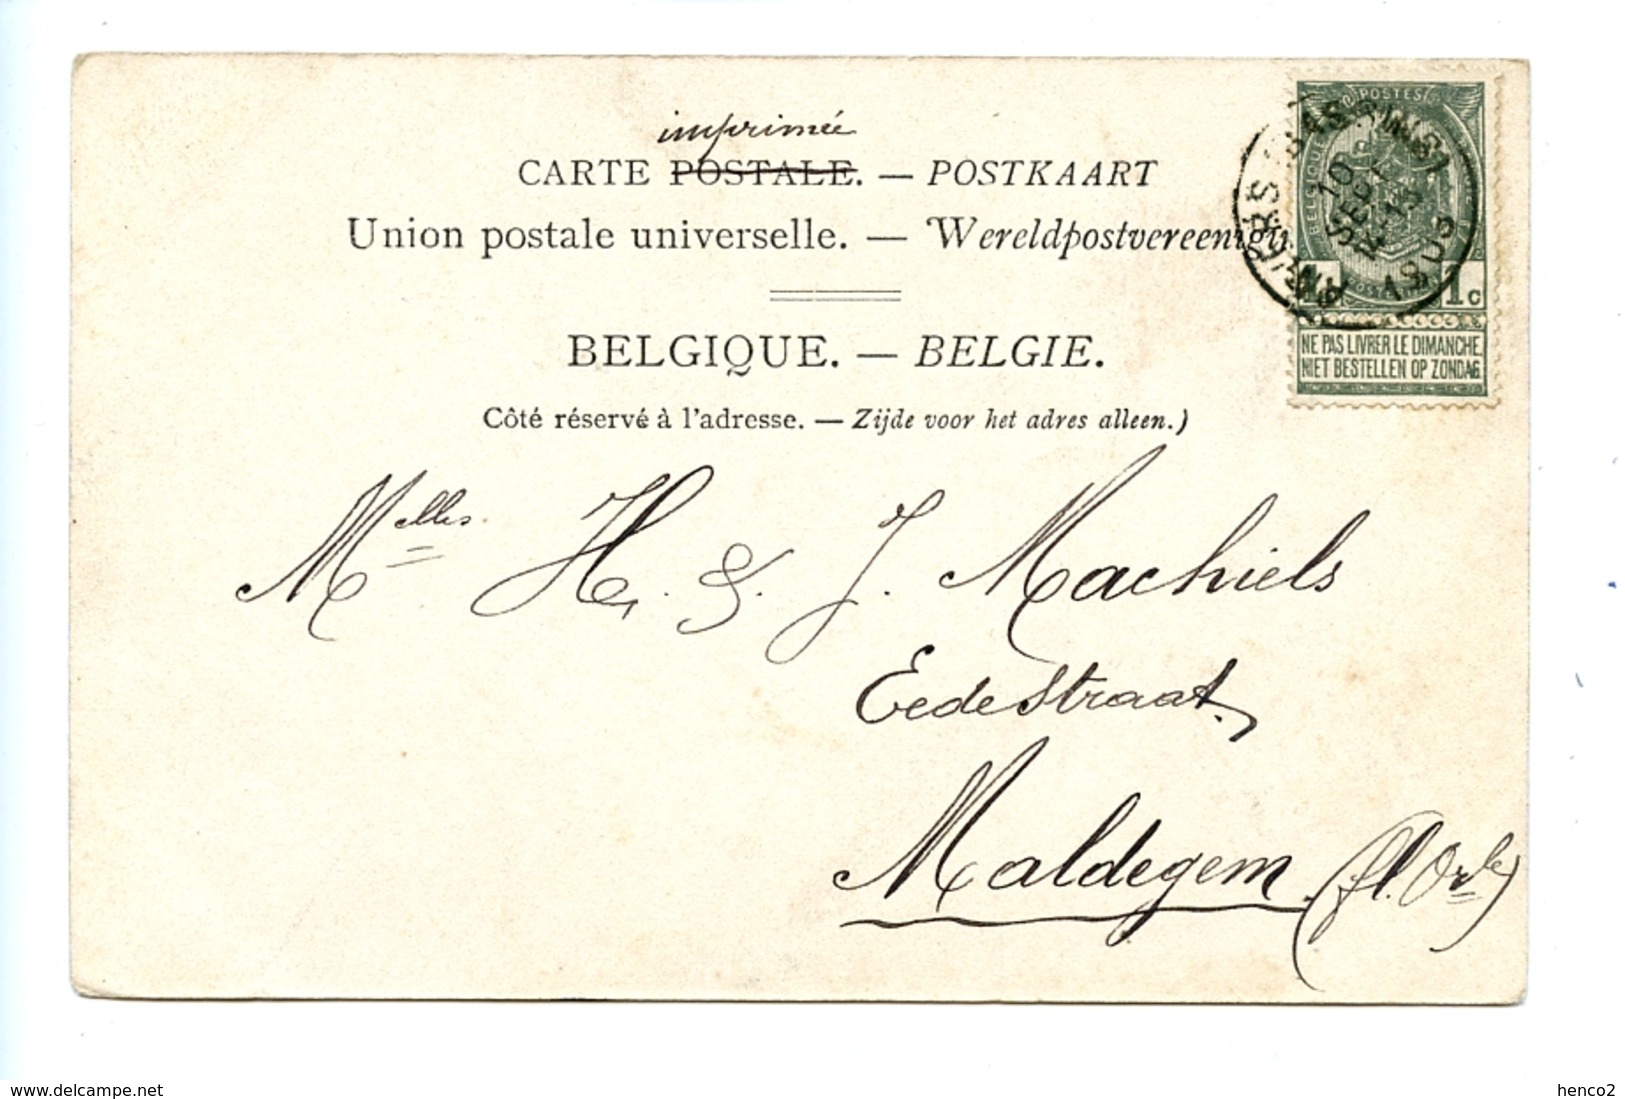 imprimée
CARTE POSTALE. — POSTKAART
Union postale universelle. — Wereldpostvereenigi
BELGIQUE. — BELGIE.
Côté réservé à l'adresse. — Zijde voor het adres alleen.)
POSTES
BELGIQUE
10
SEPT
13
1903
1c
NE PAS LIVRER LE DIMANCHE
NIET BESTELLEN OP ZONDAG
Melles H. & J. Machiels
Eedestraat
Maldegem (fl. Orle)
delcampe.net
henco2